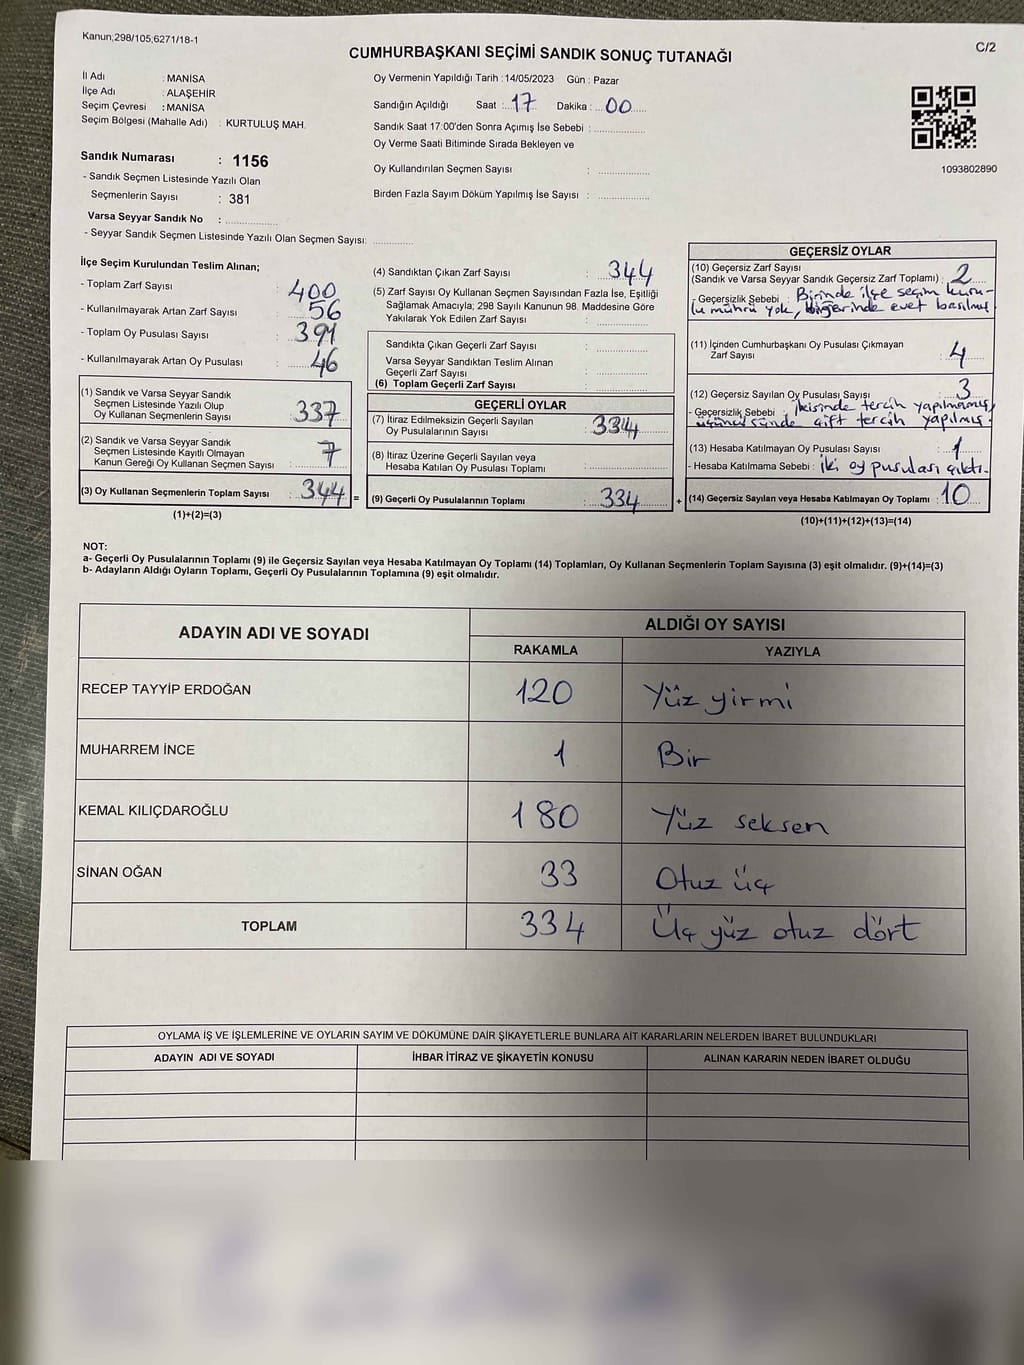 Kanun,298/105,6271/18-1
C/2
CUMHURBAŞKANI SEÇİMİ SANDIK SONUÇ TUTANAĞI
İl Adı : MANİSA
İlçe Adı : ALAŞEHİR
Seçim Çevresi : MANİSA
Seçim Bölgesi (Mahalle Adı) : KURTULUŞ MAH.
Sandık Numarası : 1156
- Sandık Seçmen Listesinde Yazılı Olan
Seçmenlerin Sayısı : 381
Varsa Seyyar Sandık No : ..............
- Seyyar Sandık Seçmen Listesinde Yazılı Olan Seçmen Sayısı: ............
Oy Vermenin Yapıldığı Tarih : 14/05/2023 Gün : Pazar
Sandığın Açıldığı Saat : 17 Dakika : 00
Sandık Saat 17:00'den Sonra Açımış İse Sebebi : ..............
Oy Verme Saati Bitiminde Sırada Bekleyen ve
Oy Kullandırılan Seçmen Sayısı : ..............
Birden Fazla Sayım Döküm Yapılmış İse Sayısı : ..............
1093802890
İlçe Seçim Kurulundan Teslim Alınan;
- Toplam Zarf Sayısı : 400
- Kullanılmayarak Artan Zarf Sayısı : 56
- Toplam Oy Pusulası Sayısı : 391
- Kullanılmayarak Artan Oy Pusulası : 46
(1) Sandık ve Varsa Seyyar Sandık
Seçmen Listesinde Yazılı Olup
Oy Kullanan Seçmenlerin Sayısı : 337
(2) Sandık ve Varsa Seyyar Sandık
Seçmen Listesinde Kayıtlı Olmayan
Kanun Gereği Oy Kullanan Seçmen Sayısı : 7
(3) Oy Kullanan Seçmenlerin Toplam Sayısı : 344 =
(1)+(2)=(3)
(4) Sandıktan Çıkan Zarf Sayısı : 344
(5) Zarf Sayısı Oy Kullanan Seçmen Sayısından Fazla İse, Eşitliği
Sağlamak Amacıyla; 298 Sayılı Kanunun 98. Maddesine Göre
Yakılarak Yok Edilen Zarf Sayısı : ..............
Sandıkta Çıkan Geçerli Zarf Sayısı : ..............
Varsa Seyyar Sandıktan Teslim Alınan
Geçerli Zarf Sayısı : ..............
(6) Toplam Geçerli Zarf Sayısı : ..............
GEÇERLİ OYLAR
(7) İtiraz Edilmeksizin Geçerli Sayılan
Oy Pusulalarının Sayısı : 334
(8) İtiraz Üzerine Geçerli Sayılan veya
Hesaba Katılan Oy Pusulası Toplamı : ..............
(9) Geçerli Oy Pusulalarının Toplamı : 334 +
GEÇERSİZ OYLAR
(10) Geçersiz Zarf Sayısı
(Sandık ve Varsa Seyyar Sandık Geçersiz Zarf Toplamı) : 2
- Geçersizlik Sebebi : Birinde ilçe seçim kuru-
lu mührü yok, diğerinde evet basılmış
(11) İçinden Cumhurbaşkanı Oy Pusulası Çıkmayan
Zarf Sayısı : 4
(12) Geçersiz Sayılan Oy Pusulası Sayısı : 3
- Geçersizlik Sebebi : İkisinde tercih yapılmamış,
üçüncüsünde çift tercih yapılmış.
(13) Hesaba Katılmayan Oy Pusulası Sayısı : 1
- Hesaba Katılmama Sebebi : iki oy pusulası çıktı.
(14) Geçersiz Sayılan veya Hesaba Katılmayan Oy Toplamı : 10
(10)+(11)+(12)+(13)=(14)
NOT:
a- Geçerli Oy Pusulalarının Toplamı (9) ile Geçersiz Sayılan veya Hesaba Katılmayan Oy Toplamı (14) Toplamları, Oy Kullanan Seçmenlerin Toplam Sayısına (3) eşit olmalıdır. (9)+(14)=(3)
b- Adayların Aldığı Oyların Toplamı, Geçerli Oy Pusulalarının Toplamına (9) eşit olmalıdır.
ADAYIN ADI VE SOYADI
ALDIĞI OY SAYISI
RAKAMLA YAZIYLA
RECEP TAYYİP ERDOĞAN 120 Yüz yirmi
MUHARREM İNCE 1 Bir
KEMAL KILIÇDAROĞLU 180 Yüz seksen
SİNAN OĞAN 33 Otuz üç
TOPLAM 334 Üç yüz otuz dört
OYLAMA İŞ VE İŞLEMLERİNE VE OYLARIN SAYIM VE DÖKÜMÜNE DAİR ŞİKAYETLERLE BUNLARA AİT KARARLARIN NELERDEN İBARET BULUNDUKLARI
ADAYIN ADI VE SOYADI İHBAR İTİRAZ VE ŞİKAYETİN KONUSU ALINAN KARARIN NEDEN İBARET OLDUĞU